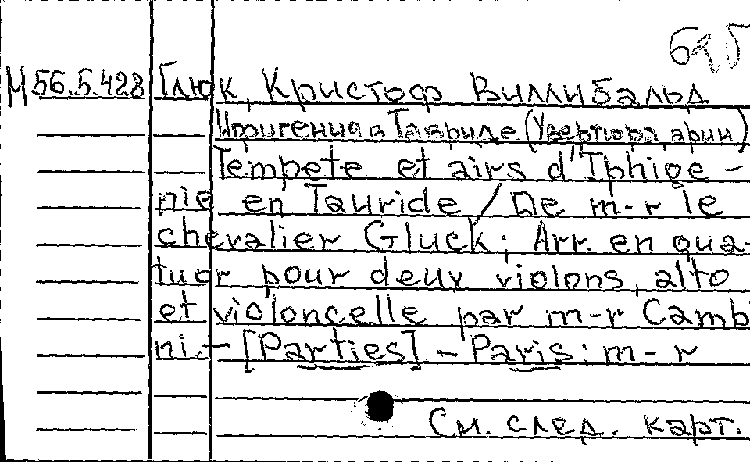 625
М 56.5.428 Глюк, Кристоф Виллибальд
Ифигения в Тавриде (Увертюра, арии)
Tempete et airs d'Iphige-
nie en Tauride / De m-r le
chevalier Gluck; Arr. en qua-
tuor pour deux violons, alto
et violoncelle par m-r Camb
ni. - [Parties] - Paris: m-r
См. след. карт.